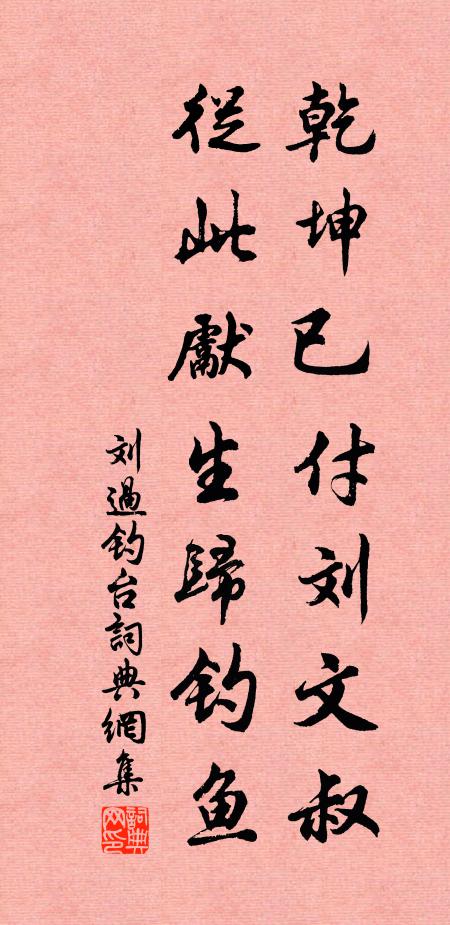 乾坤已付刘文叔
從此獻生歸钓鱼
刘過钓台詞典網集
詞典网印